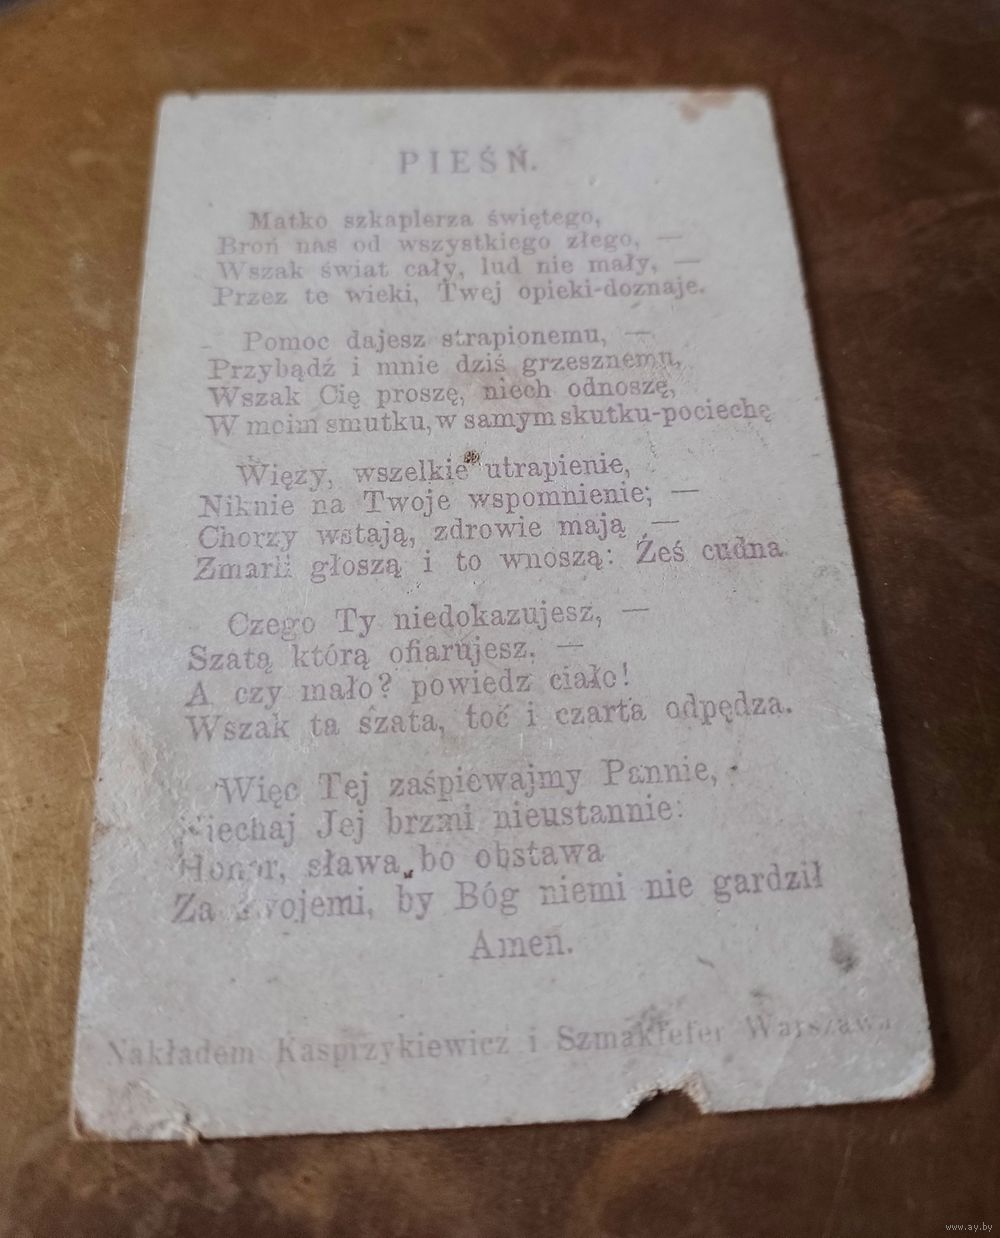 PIEŚŃ.
Matko szkaplerza świętego,
Broń nas od wszystkiego złego, —
Wszak świat cały, lud nie mały, —
Przez te wieki, Twej opieki-doznaje.
Pomoc dajesz strapionemu, —
Przybądź i mnie dziś grzesznemu,
Wszak Cię proszę, niech odnoszę,
W moim smutku, w samym skutku-pociechę
Więzy, wszelkie utrapienie,
Niknie na Twoje wspomnienie; —
Chorzy wstają, zdrowie mają, —
Zmarli głoszą i to wnoszą: Żeś cudna
Czego Ty niedokazujesz, —
Szatą którą ofiarujesz. —
A czy mało? powiedz ciało!
Wszak ta szata, toć i czarta odpędza.
Więc Tej zaśpiewajmy Pannie,
Niechaj Jej brzmi nieustannie:
Honor, sława, bo obstawa
Za swojemi, by Bóg niemi nie gardził
Amen.
Nakładem Kasprzykiewicz i Szmakfefer Warszawa
www.ay.by